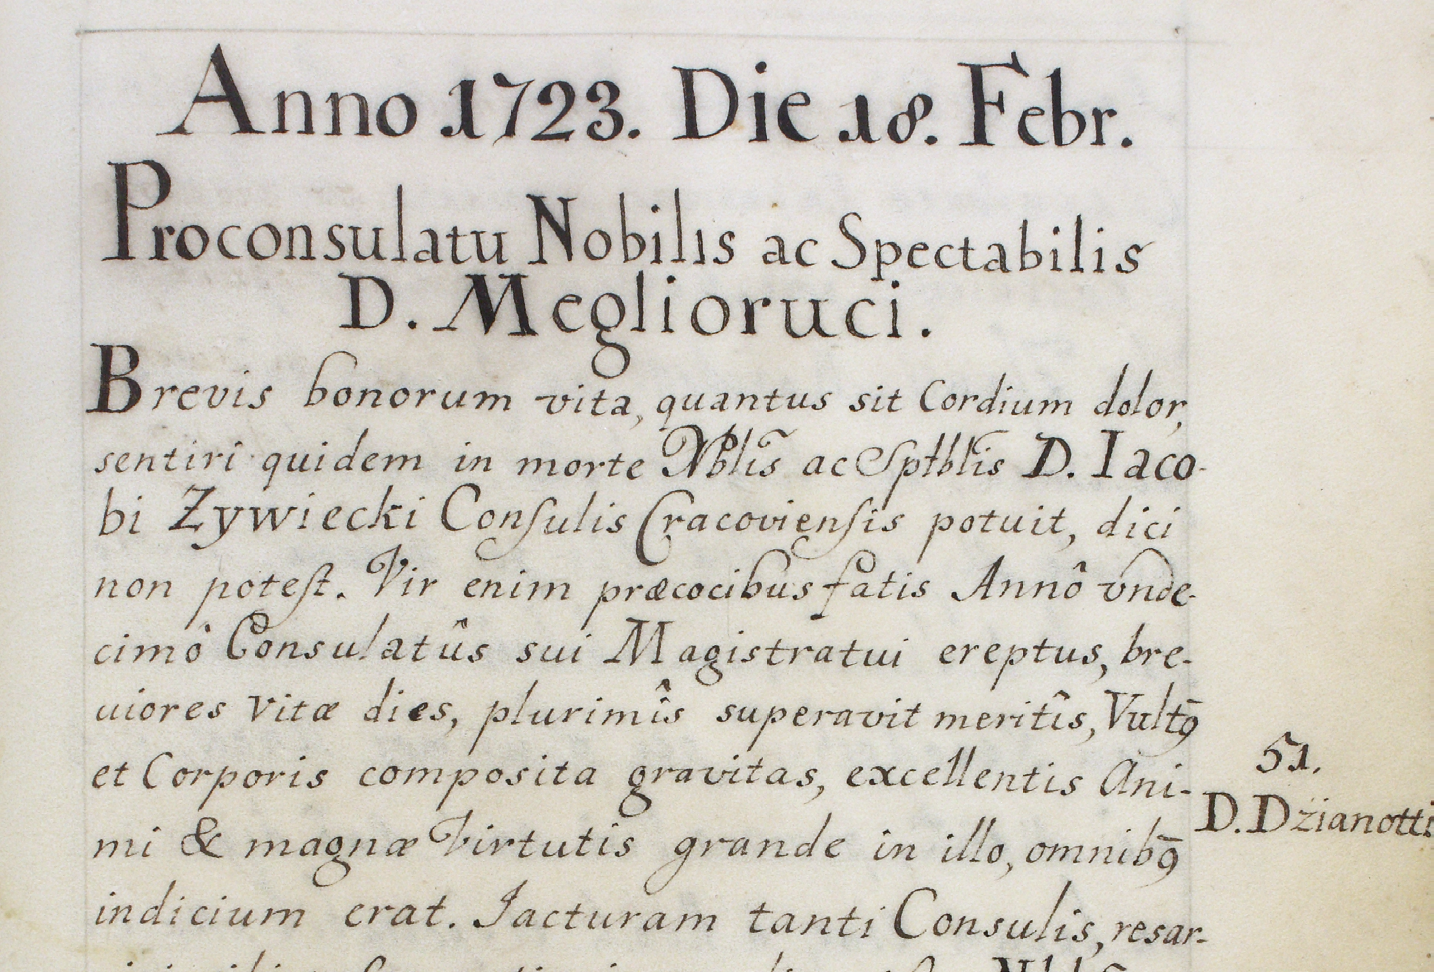 Anno 1723. Die 18. Febr.
Proconsulatu Nobilis ac Spectabilis
D. Meglioruci.
Brevis bonorum vita, quantus sit Cordium dolor,
sentiri quidem in morte Nblis̃ ac Sptblis̃ D. Iaco-
bi Zywiecki Conſulis Cracovienſis potuit, dici
non poteſt. Vir enim præcocibus fatis Annô vnde-
cimô Consulatûs sui Magistratui ereptus, bre-
uiores vitæ dies, plurimîs superavit meritîs, Vultꝯ
et Corporis composita gravitas, excellentis Ani-
mi & magnæ Virtutis grande in illo, omnibꝯ
indicium erat. Jacturam tanti Consulis, resar-
51.
D. Dżianotti